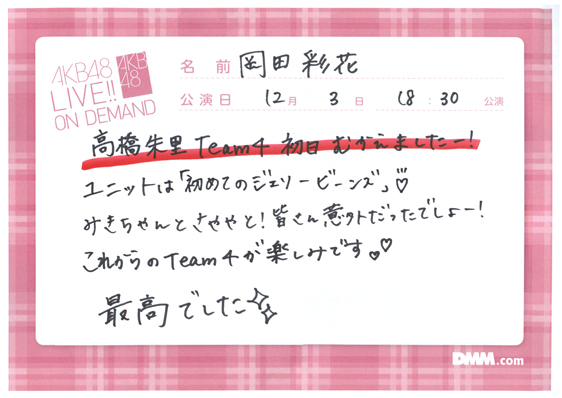 AKB48
LIVE!!
ON DEMAND
AKB
48
名前 岡田彩花
公演日 12月 3日 18:30 公演
高橋朱里Team4 初日 むかえましたー!
ユニットは「初めてのジェリービーンズ」♡
みきちゃんとさややと!皆さん意外だったでしょー!
これからのTeam4が楽しみです♡♡
最高でした
DMM.com